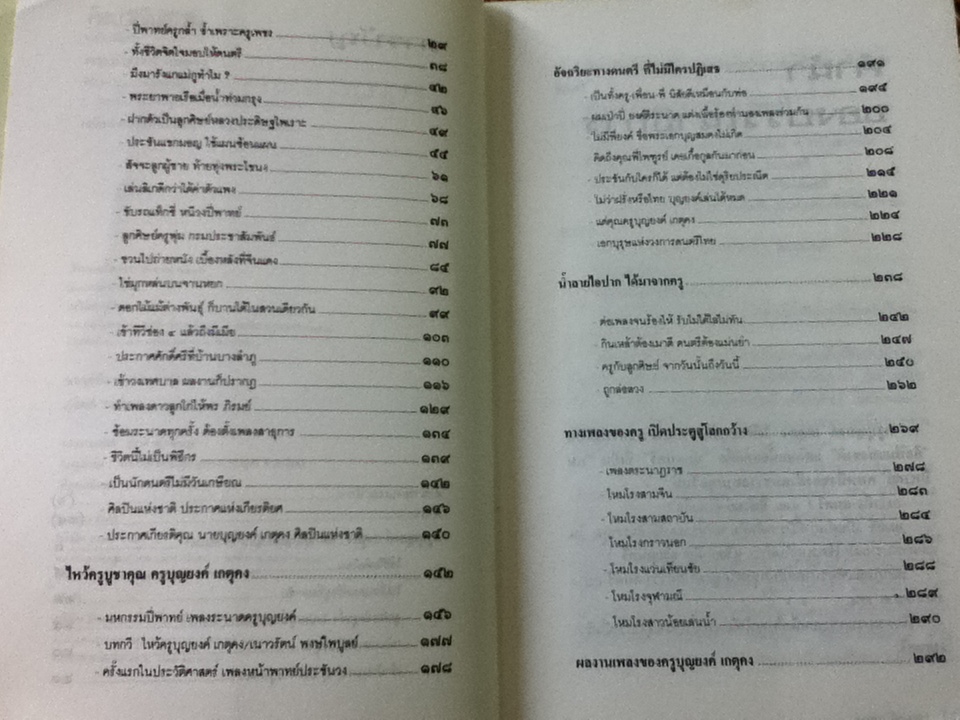 - ปี่พาทย์ครูกล้ำ ช้ำเพราะครูเพชร ๒๙
- ทั้งชีวิตจิตใจมอบให้ดนตรี ๓๘
- มึงมารังแกแม่กูทำไม ? ๔๒
- พระยาพายเรือเมื่อน้ำท่วมกรุง ๔๖
- ฝากตัวเป็นลูกศิษย์หลวงประดิษฐไพเราะ ๔๙
- ประชันแขกมอญ ใช้แผนซ้อนแผน ๕๕
- สัจจะลูกผู้ชาย ท้ายทุ่งพระโขนง ๖๑
- เล่นลิเกดีกว่าได้ค่าตัวแพง ๖๘
- ขับรถแท็กซี่ หนีวงปี่พาทย์ ๗๓
- ลูกศิษย์ครูพุ่ม กรมประชาสัมพันธ์ ๗๗
- ชวนไปถ่ายหนัง เบื้องหลังที่จีนแดง ๘๕
- ไข่มุกหล่นบนจานหยก ๙๒
- ดอกไม้แม้ต่างพันธุ์ ก็บานได้ในสวนเดียวกัน ๙๙
- เข้าทีวีช่อง ๔ แล้วถึงมีเมีย ๑๐๓
- ประกาศศักดิ์ศรีที่บ้านบางลำภู ๑๑๐
- เข้าวงเทศบาล ผลงานก็ปรากฏ ๑๑๖
- ทำเพลงดาวลูกไก่ให้พร ภิรมย์ ๑๒๙
- ซ้อมระนาดทุกครั้ง ต้องตั้งเพลงสาธุการ ๑๓๔
- ชีวิตนี้ไม่เป็นพิธีกร ๑๓๙
- เป็นนักดนตรีไม่มีวันเกษียณ ๑๔๒
ศิลปินแห่งชาติ ประกาศแห่งเกียรติยศ ๑๔๖
- ประกาศเกียรติคุณ นายบุญยงค์ เกตุคง ศิลปินแห่งชาติ ๑๕๐
ไหว้ครูบูชาคุณ ครูบุญยงค์ เกตุคง ๑๕๒
- มหกรรมปี่พาทย์ เพลงระนาดครูบุญยงค์ ๑๕๖
- บทกวี ไหว้ครูบุญยงค์ เกตุคง/เนาวรัตน์ พงษ์ไพบูลย์ ๑๗๗
- ครั้งแรกในประวัติศาสตร์ เพลงหน้าพาทย์ประชันวง ๑๗๘
อัจฉริยะทางดนตรี ที่ไม่มีใครปฏิเสธ ๑๙๑
- เป็นทั้งครู-เพื่อน-พี่ นิสัยดีเหมือนกับพ่อ ๑๙๔
- ผมเป่าปี่ ยงค์ตีระนาด แต่งเนื้อร้องทำนองเพลงร่วมกัน ๒๐๐
- ไม่มีพี่ยงค์ ชื่อพระเอกบุญสมคงไม่เกิด ๒๐๔
- คิดถึงคุณพี่ไพฑูรย์ เคยเกื้อกูลกันมาก่อน ๒๐๘
- ประชันกับใครก็ได้ แต่ต้องไม่ใช่ดุริยประณีต ๒๑๕
- ไม่ว่าฝรั่งหรือไทย บุญยงค์เล่นได้หมด ๒๒๑
- แด่คุณครูบุญยงค์ เกตุคง ๒๒๔
- เอกบุรุษแห่งวงการดนตรีไทย ๒๒๘
น้ำลายไอปาก ได้มาจากครู ๒๓๘
ต่อเพลงจนร้องไห้ รับไม่ได้ไล่ไม่ทัน ๒๔๒
- กินเหล้าต้องเมาดี ดนตรีต้องแม่นยำ ๒๔๗
- ครูกับลูกศิษย์ จากวันนั้นถึงวันนี้ ๒๕๐
ถูกล่อลวง ๒๖๒
ทางเพลงของครู เปิดประตูสู่โลกกว้าง ๒๖๙
- เพลงตระนาฏราช ๒๗๘
- โหมโรงสามจีน ๒๘๓
- โหมโรงสามสถาบัน ๒๘๔
- โหมโรงกราวนอก ๒๘๖
- โหมโรงแว่นเทียนชัย ๒๘๘
- โหมโรงจุฬามณี ๒๘๙
- โหมโรงสาวน้อยเล่นน้ำ ๒๙๐
ผลงานเพลงของครูบุญยงค์ เกตุคง ๒๙๒